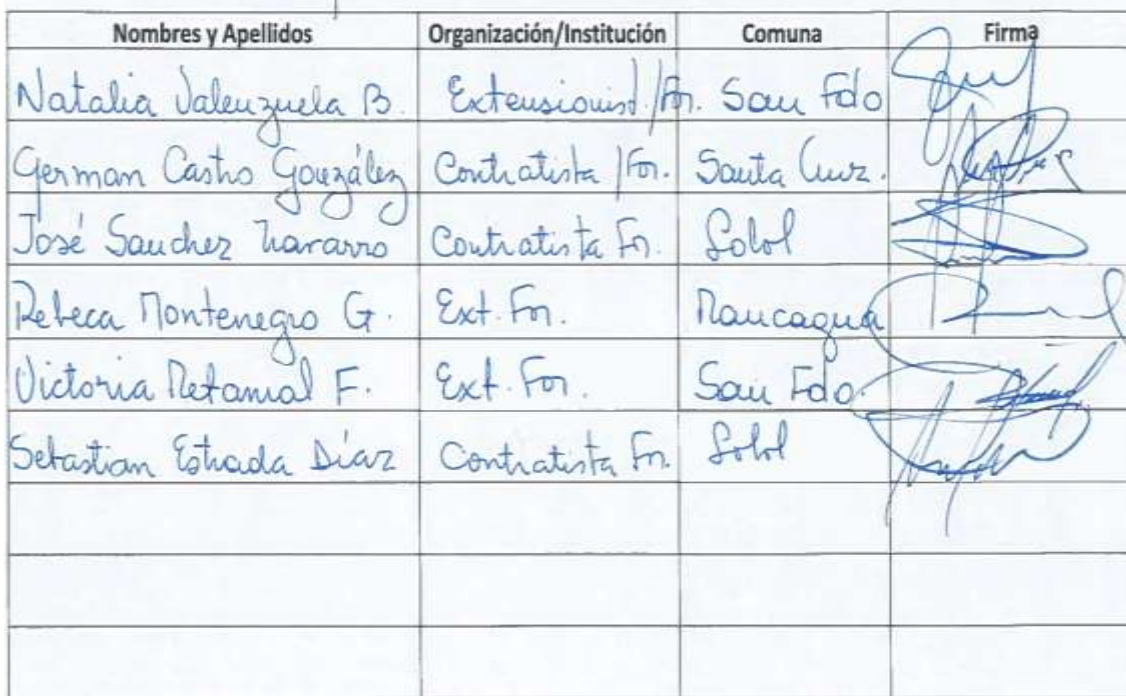 Nombres y Apellidos Organización/Institución Comuna Firma
Natalia Valenzuela B. Extensionist./For. San Fdo
German Castro González Contratista/For. Santa Cruz.
José Sanchez Navarro Contratista For. Lolol
Rebeca Montenegro G. Ext. For. Rancagua
Victoria Retamal F. Ext. For. San Fdo.
Sebastian Estrada Díaz Contratista For. Lolol